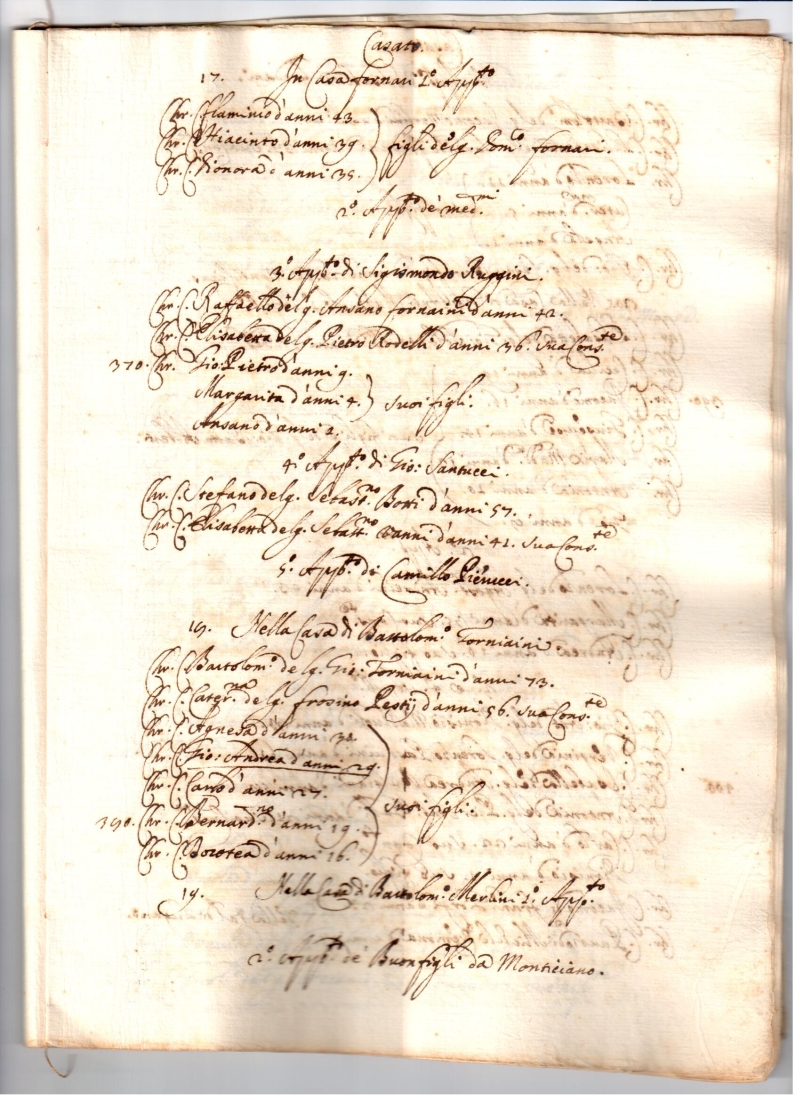 Casato.
17. In Casa fornari 1º Appto
Chr. C. flaminio d'anni 43
Chr. C. Hiacinto d'anni 39. figli del q. Domco fornari.
Chr. C. Lionora d'anni 35.
2º. Appto. de med.mi
3º. Appto. di Sigismondo Ruggini.
Chr. C. Raffaello del q. Ansano fornaini d'anni 42.
Chr. C. Elisabetta del q. Pietro Rodelli d'anni 36. sua Conste
370. Chr. Gio: Pietro d'anni 9.
Margarita d'anni 4. suoi figli.
Ansano d'anni 2.
4º Appto. di Gio: Santucci.
Chr. C. Stefano del q. Sebastno Borri d'anni 57.
Chr. C. Elisabetta del q. Sebastno Vanni d'anni 41. sua Conste
5º. Appto. di Camillo Pierucci.
18. Nella Casa di Bartolomo Torniaini.
Chr. C. Bartolomo del q. Gio: Torniaini d'anni 73.
Chr. C. Caterna del q. frosino Pestij d'anni 56. sua Conste
Chr. C. Agnesa d'anni 30
Chr. C. Gio: Andrea d'anni 29.
Chr. C. Carlo d'anni 27. suoi figli.
Chr. C. Bernardno d'anni 19.
Chr. C. Dorotea d'anni 16.
19. Nella Casa di Bartolomo Merlini 1º. Appto
2º. Appto de Buonfigli da Monticiano.